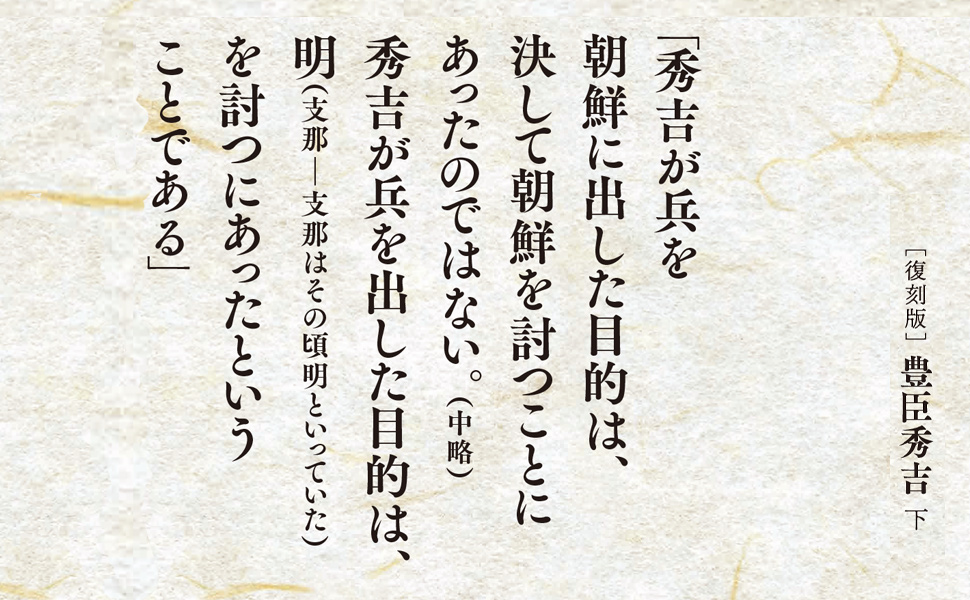 ［復刻版］豊臣秀吉 下
「秀吉が兵を
朝鮮に出した目的は、
決して朝鮮を討つことに
あったのではない。（中略）
秀吉が兵を出した目的は、
明（支那―支那はその頃明といっていた）
を討つにあったという
ことである」